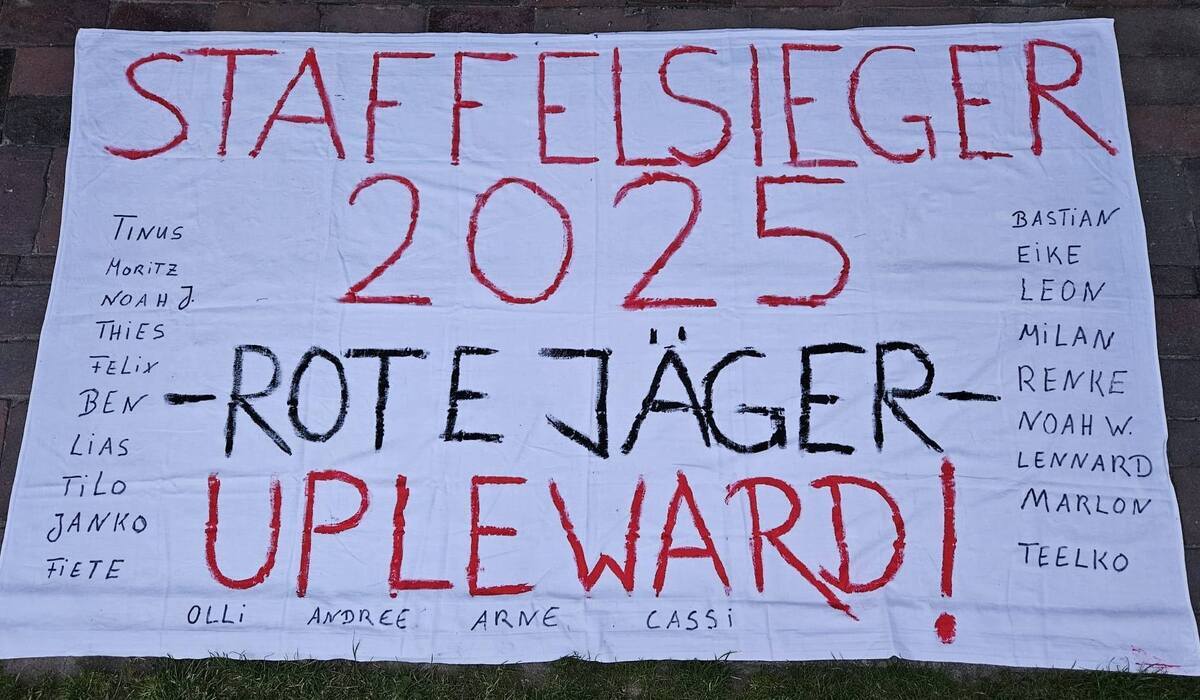 STAFFELSIEGER
2025
-ROTE JÄGER-
UPLEWARD!
TINUS
MORITZ
NOAH J.
THiES
FELiX
BEN
LiAS
TiLO
JANKO
FiETE
BASTiAN
EiKE
LEON
MiLAN
RENKE
NOAH W.
LENNARD
MARLON
TEELKO
OLLi ANDREE ARNE CASSi